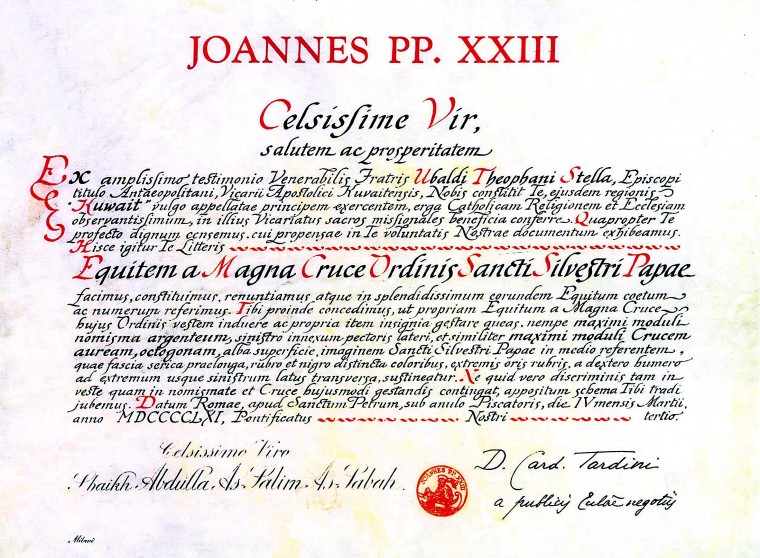 JOANNES PP. XXIII
Celsissime Vir,
salutem ac prosperitatem
Ex amplissimo testimonio Venerabilis Fratris Ubaldi Theophani Stella, Episcopi
titulo Antaeopolitani, Vicarii Apostolici Kuvaitensis, Nobis constitit Te, ejusdem regionis
"Kuwait" vulgo appellatae principem exercentem, erga Catholicam Religionem et Ecclesiam
observantissimum, in illius Vicariatus sacros missionales beneficia conferre. Quapropter Te
profecto dignum censemus, cui propensae in Te voluntatis Nostrae documentum exhibeamus.
Hisce igitur Te Litteris
Equitem a Magna Cruce Ordinis Sancti Silvestri Papae
facimus, constituimus, renuntiamus atque in splendidissimum eorundem Equitum coetum
ac numerum referimus. Tibi proinde concedimus, ut propriam Equitum a Magna Cruce
hujus Ordinis vestem induere ac propria item insignia gestare queas, nempe maximi moduli
nomisma argenteum, sinistro innexum pectoris lateri, et similiter maximi moduli Crucem
auream, octogonam, alba superficie, imaginem Sancti Silvestri Papae in medio referentem,
quae fascia serica praelonga, rubro et nigro distincta coloribus, extremis oris rubris, a dextero humero
ad extremum usque sinistrum latus transversa, sustineatur. Ne quid vero discriminis tam in
veste quam in nomismate et Cruce hujusmodi gestandis contingat, appositum schema Tibi tradi
jubemus. Datum Romae, apud Sanctum Petrum, sub anulo Piscatoris, die IV mensis Martii,
anno MDCCCCLXI, Pontificatus Nostri tertio.
Celsissimo Viro
Shaikh Abdulla As-Salim As-Sabah.
JOANNES PP. XXIII
D. Card. Tardini
a publicis Eccl̃ae negotiis